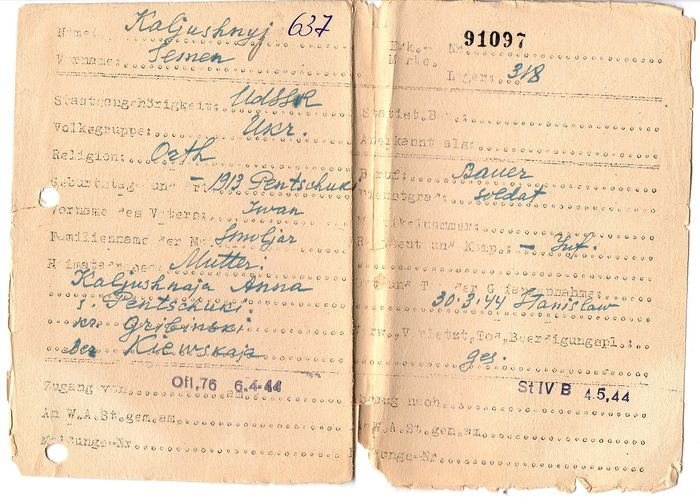 Name: Kaljushnyj 637
Vorname: Semen
Staatsangehörigkeit: UdSSR
Volksgruppe: Ukr.
Religion: Orth
Geburtstag und - 1913 Pentschuki
Vorname des Vaters: Iwan
Familienname der M Smoljar
Mutter:
Kaljushnaja Anna
s. Pentschuki
kr. Gribinski
Kiewskaja
Zugang von Ofl,76 am 6.4.44
An W.A.St.gem.am
Meldungs-Nr
Erk.- Nr 91097
Marke
Lager: 318
Anerkannt als:
Beruf: Bauer
Dienstgrad: soldat
Matrikelnummer:
Regiment und Komp.: - Inf.
30.3.44 Stanislaw
Verw., Verletzt, Tod, Beerdigungspl.:
ges.
Abgang nach St IV B 4.5,44
An W.A.St.gem.am
Meldungs-Nr